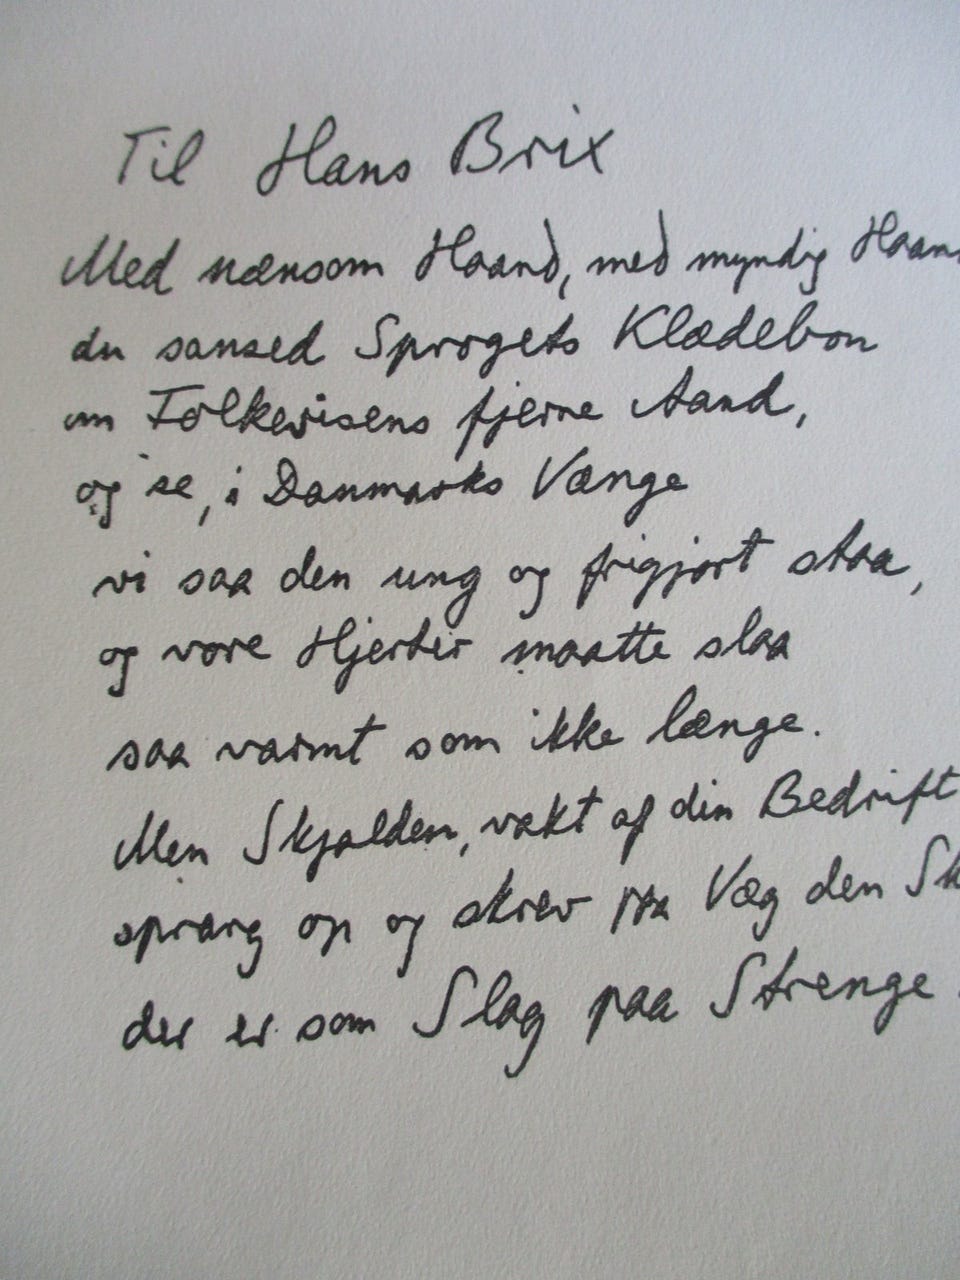 Til Hans Brix
Med nænsom Haand, med myndig Haan
du sansed Sprogets Klædebon
om Folkevisens fjerne Aand,
og se, i Danmarks Vænge
vi saa den ung og frigjort staa,
og vore Hjerter maatte slaa
saa varmt som ikke længe.
Men Skjalden, vakt af din Bedrift
sprang op og skrev paa Væg den Sk
der er som Slag paa Strenge.